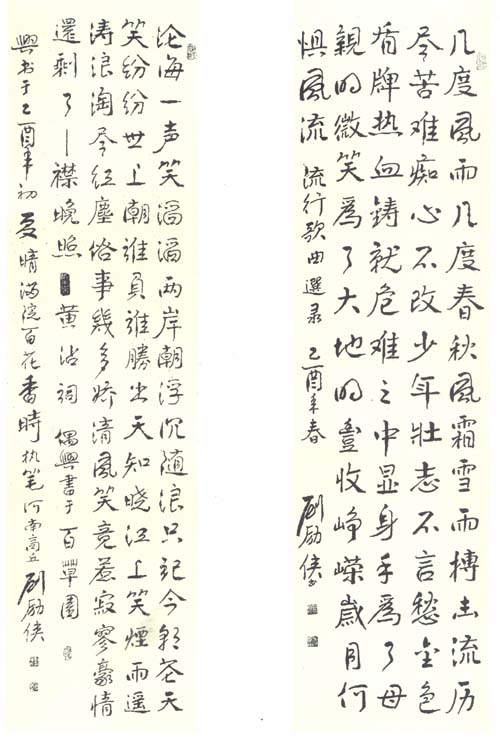 几度風雨几度春秋風霜雪雨摶击流历
尽苦难痴心不改少年壮志不言愁金色
盾牌热血铸就危难之中显身手為了母
親的微笑為了大地的豐收峥嵘歲月何
惧風流 流行歌曲選录 乙酉年春 刘励侠书
沧海一声笑滔滔两岸朝浮沉随浪只記今朝苍天
笑纷纷世上朝谁負谁勝出天知晓江上笑煙雨遥
涛浪淘尽红塵俗事幾多娇清風笑竟惹寂寥豪情
還剩了一襟晚照 黄沾词 偶興書于百草園
興书于乙酉年初夏晴满院百花香時执笔河南商丘刘励侠